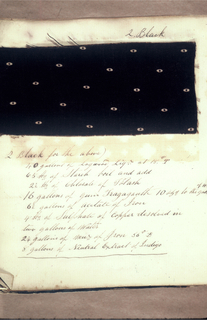 2 Black
2 Black for the above
40 gallons of Logwood liqr at 10° T
Starch boil and add
2½ lbs of Chlorate of Potash
16 gallons of gum Tragacanth 10 ozs to the
6½ gallons of acetate of Iron
4 lbs of Sulphate of Copper dissolved in
two gallons of water
2½ gallons of of Iron
8 gallons of Neutral Extract of Indigo